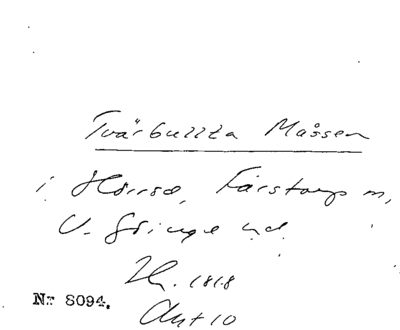 Tvärbullta Måssen
i Hörröd, Färstorps m,
V. Göinge hd.
Zh. 1818
Akt 10
Nr 8094.